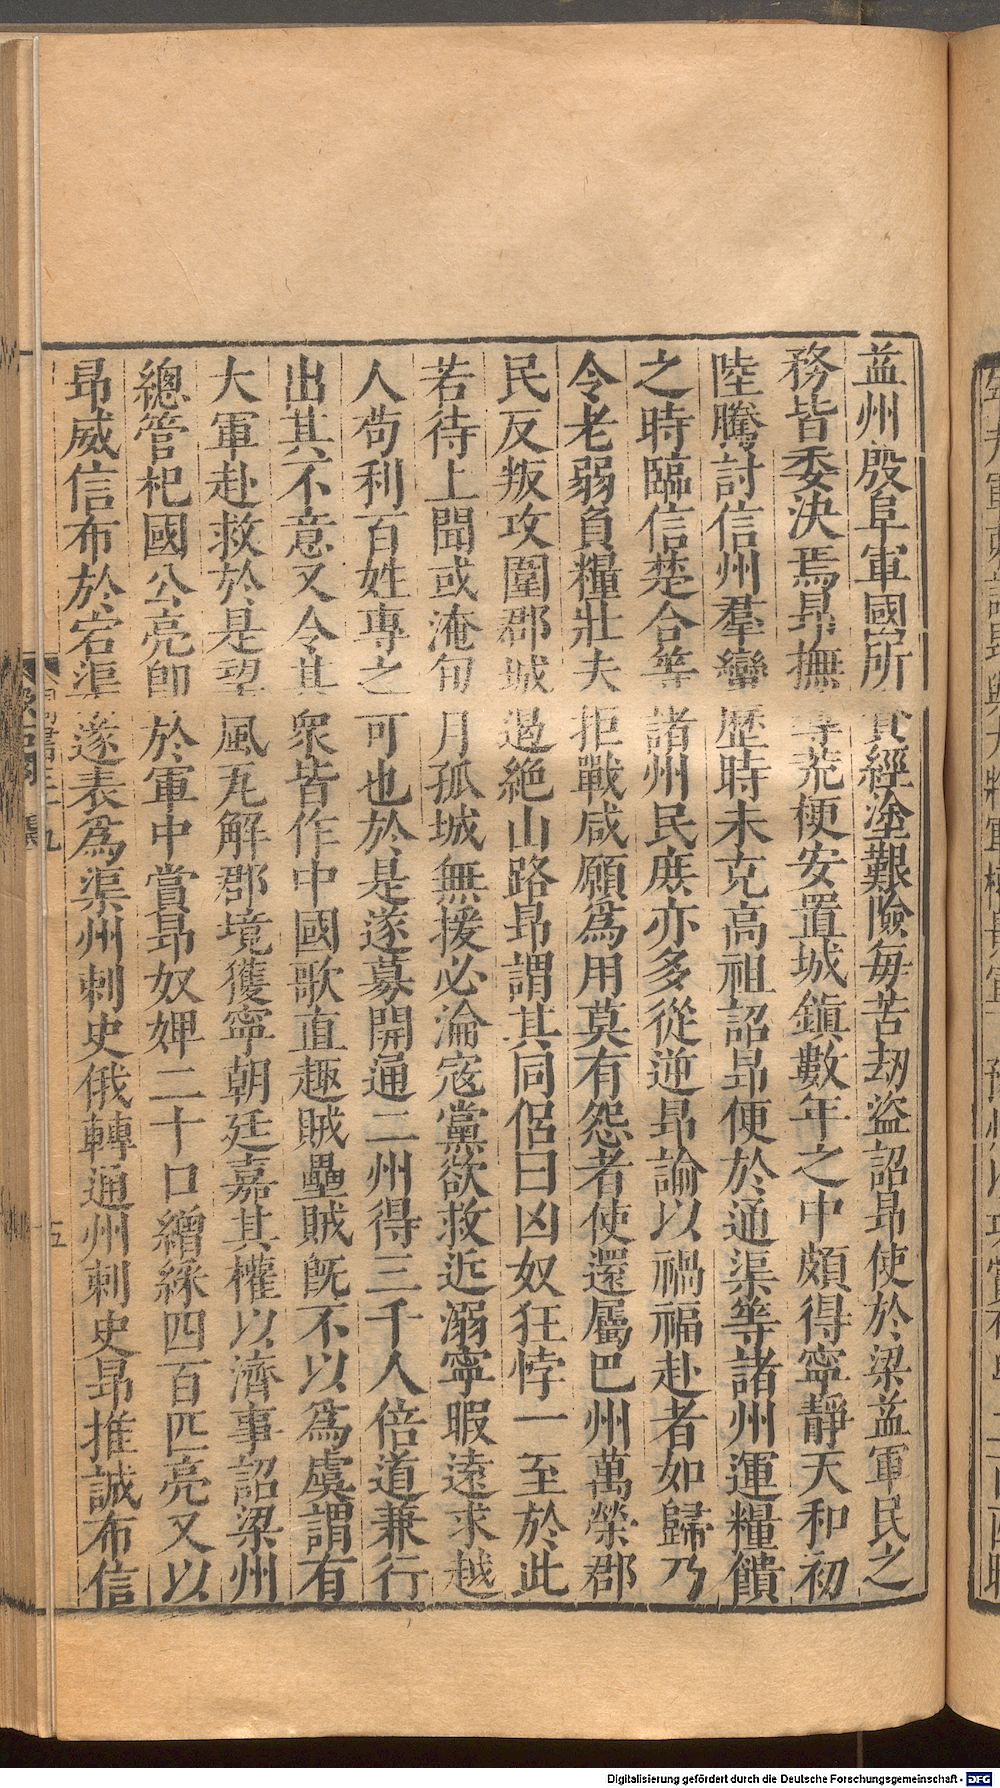 益州殷阜軍國所資經塗艱險每苦劫盜詔昂使於梁益軍民之
務皆委決焉昂撫導荒梗安置城鎮數年之中頗得寧靜天和初
陸騰討信州羣蠻歷時未克高祖詔昂便於通渠等諸州運糧饋
之時臨信楚合等諸州民庶亦多從逆昂諭以禍福赴者如歸乃
令老弱負糧壯夫拒戰咸願爲用莫有怨者使還屬巴州萬榮郡
民反叛攻圍郡城遏絕山路昂謂其同侶曰凶奴狂悖一至於此
若待上聞或淹旬月孤城無援必淪寇黨欲救近溺寧暇遠求越
人苟利百姓專之可也於是遂募開通二州得三千人倍道兼行
出其不意又令其衆皆作中國歌直趣賊壘賊旣不以爲虞謂有
大軍赴救於是望風瓦解郡境獲寧朝廷嘉其權以濟事詔梁州
總管杞國公亮卽於軍中賞昂奴婢二十口繒綵四百匹亮又以
昂威信布於宕渠遂表爲渠州刺史俄轉通州刺史昂推誠布信
五
Digitalisierung gefördert durch die Deutsche Forschungsgemeinschaft - DFG